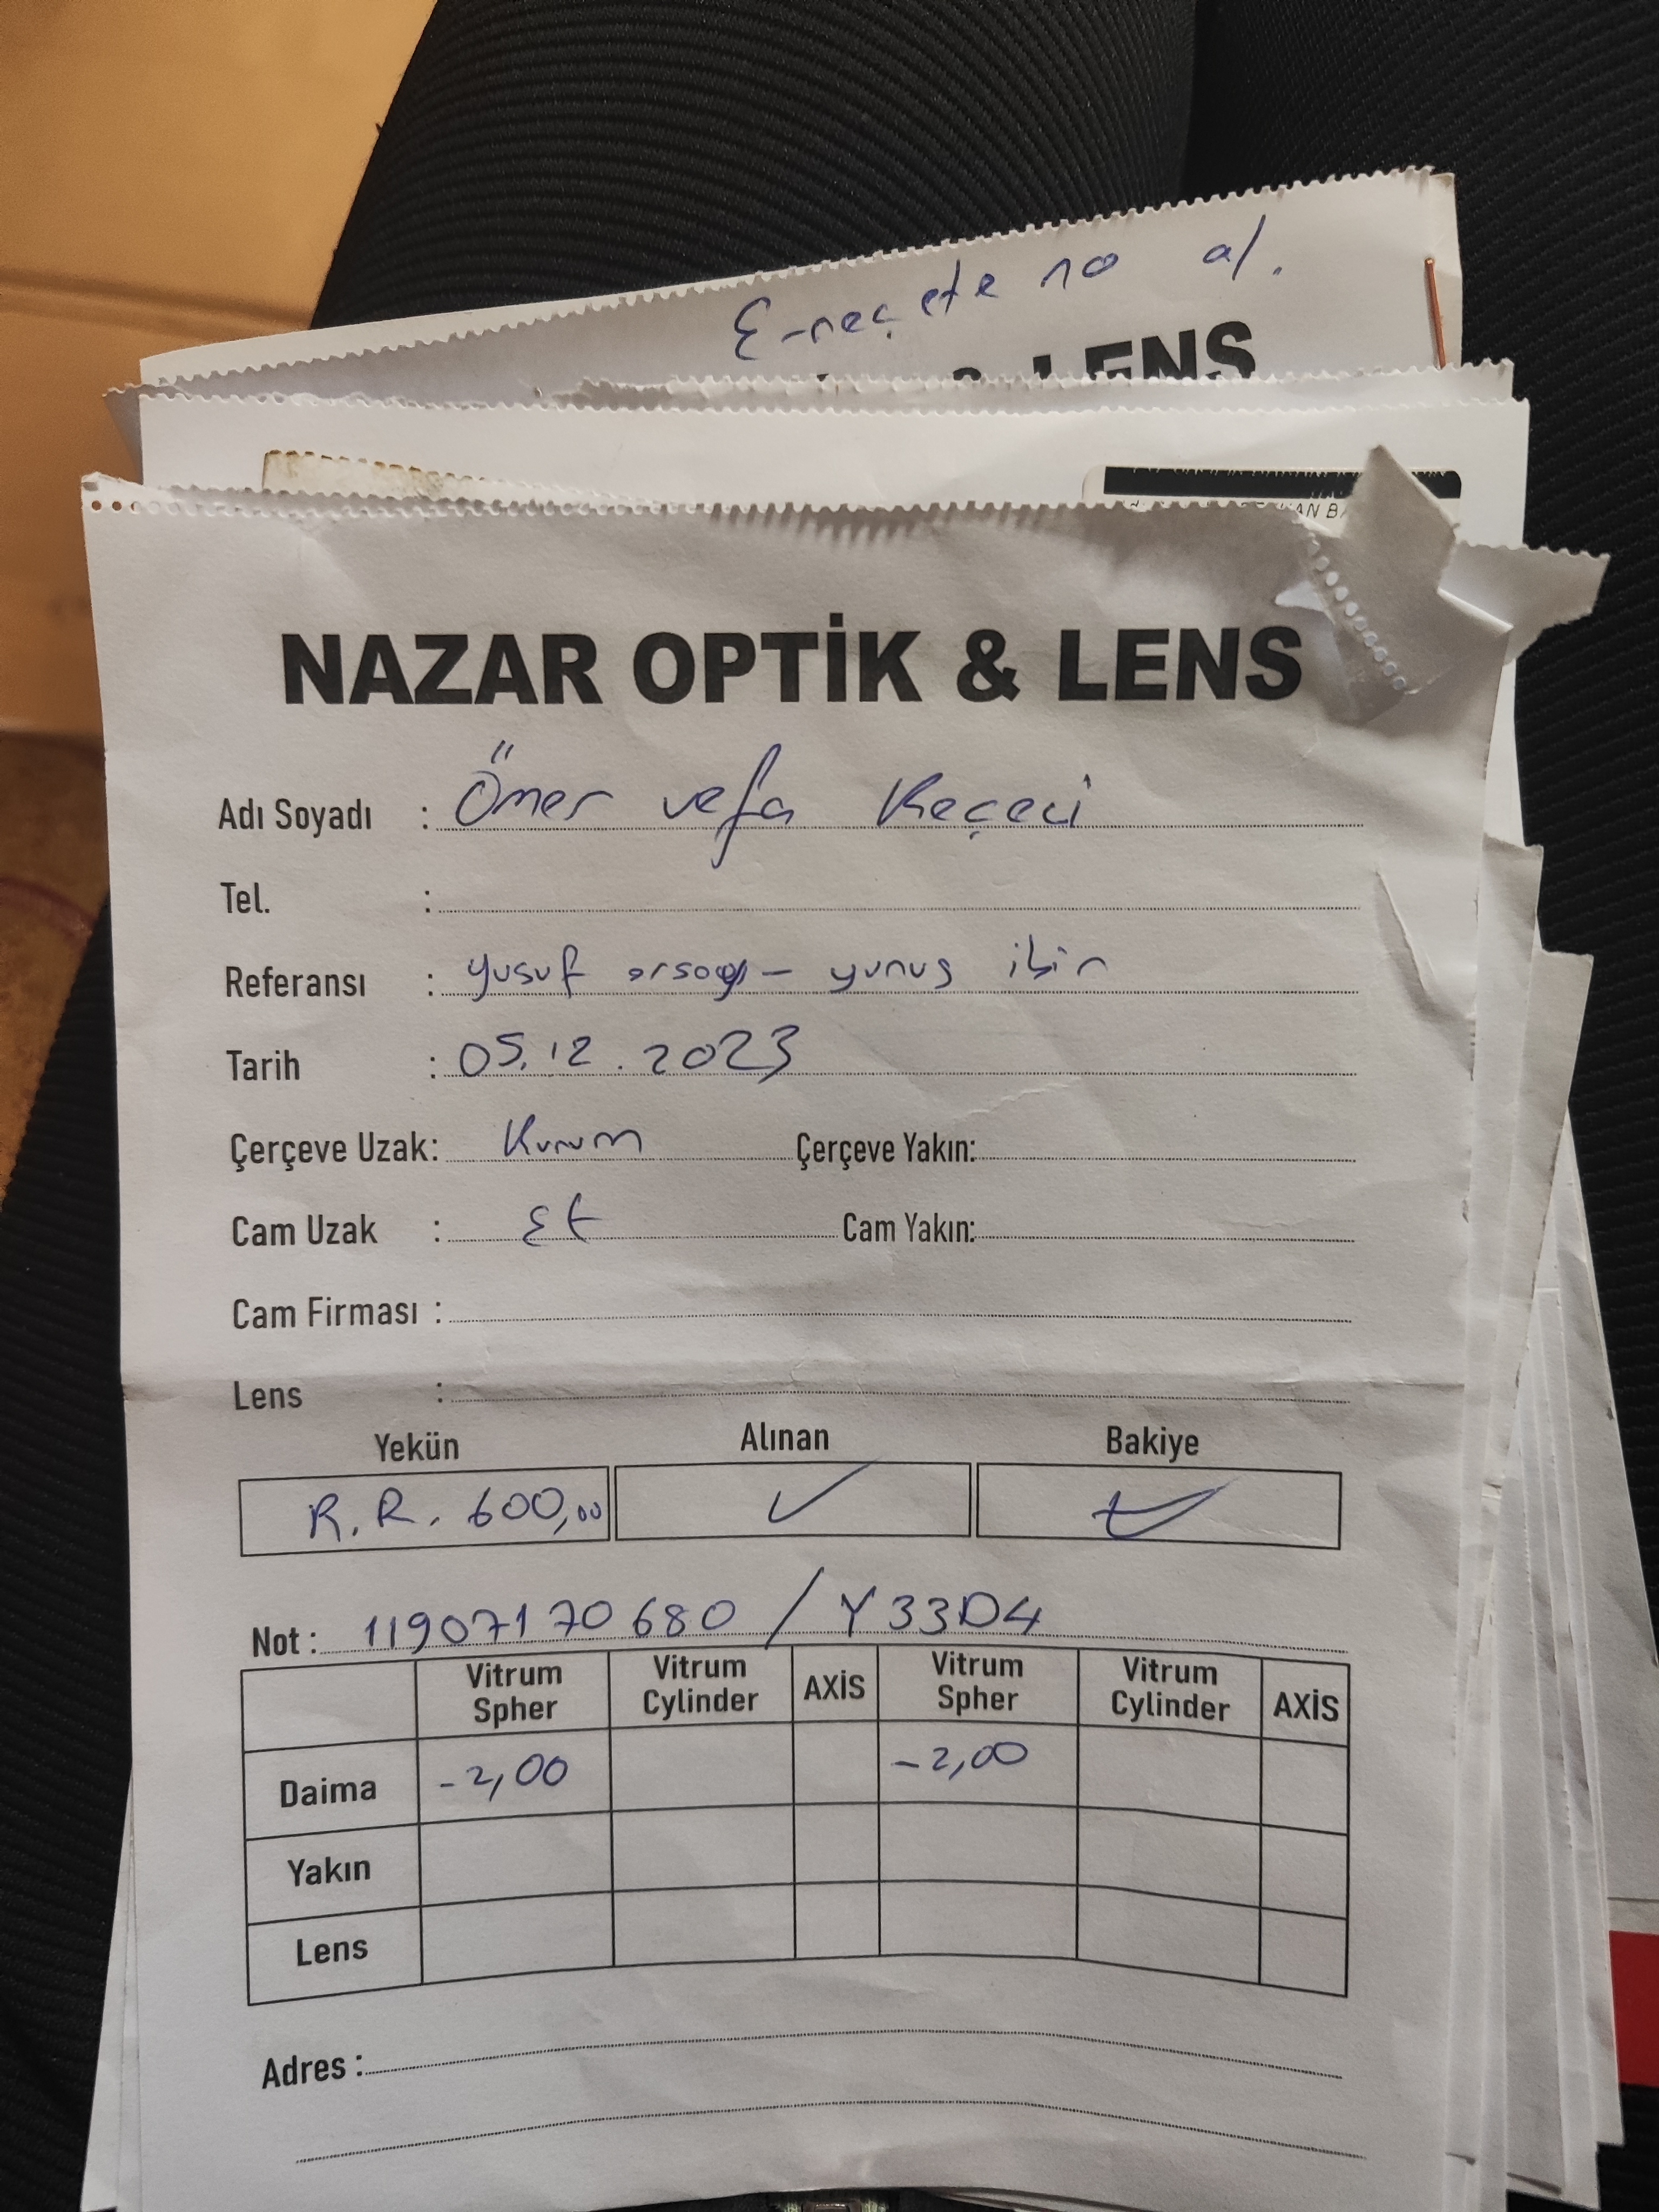 E-reçete no al.
& LENS
NAZAR OPTİK & LENS
Adı Soyadı : Ömer vefa Keçeci
Tel. :
Referansı : yusuf - yunus
Tarih : 05.12.2023
Çerçeve Uzak: Kurum Çerçeve Yakın:
Cam Uzak : Cam Yakın:
Cam Firması :
Lens :
Yekün Alınan Bakiye
R.R. 600,00
Not : 11907170680 / Y33D4
Vitrum Spher Vitrum Cylinder AXİS Vitrum Spher Vitrum Cylinder AXİS
Daima -2,00 -2,00
Yakın
Lens
Adres :